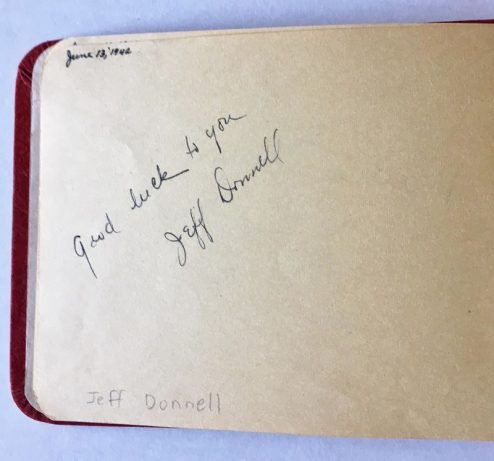 June 13, 1942
Good luck to you
Jeff Donnell
Jeff Donnell